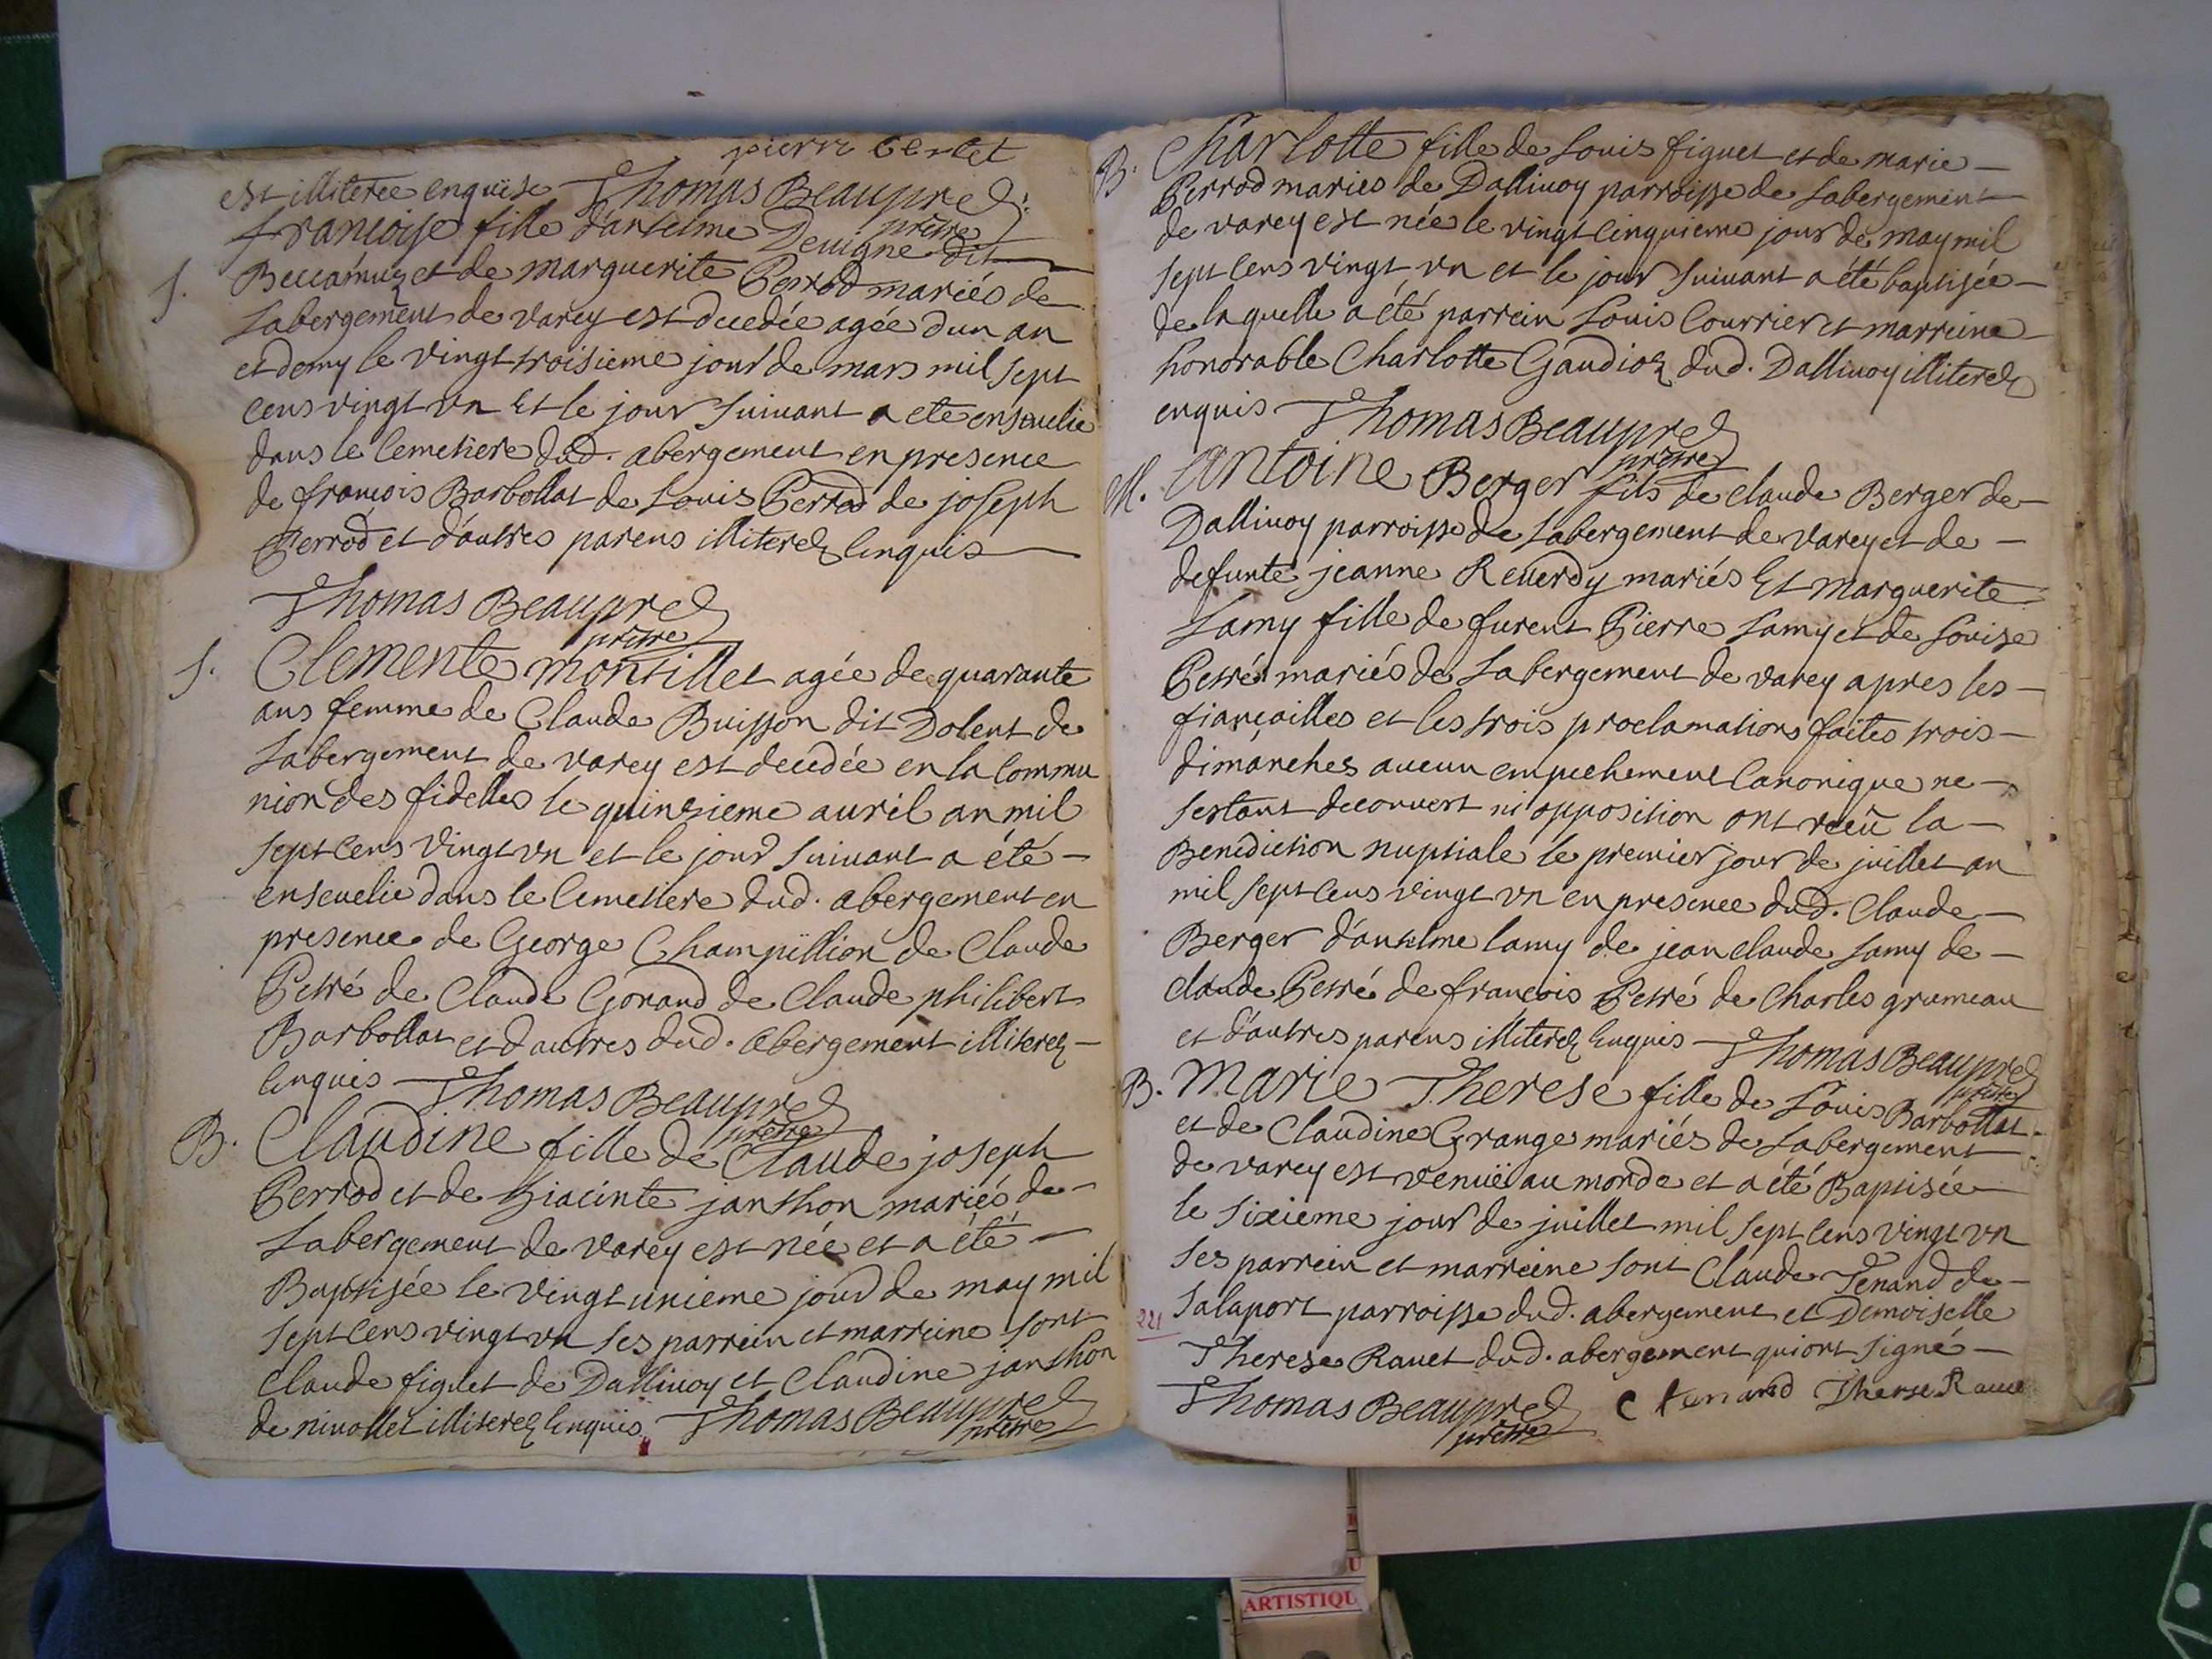 pierre berlet
est illiterée enquise Thomas Beaupred
prêtre
S. francoise fille d'antelme Deuigne dit
Beccamuz et de marguerite Perrod mariés de
Labergement de varey est decedée agée d'un an
et demy le vingt troisieme jour de mars mil sept
cens vingt vn Et le jour suiuant a eté enseuelie
dans le cemetiere dud. abergement en presence
de francois Barbollat de Louis Perrod de joseph
Perrod et d'autres parens illiterez enquis
Thomas Beaupred
prêtre
S. Clemente montillet agée de quarante
ans femme de Claude Buisson dit Dolent de
Labergement de varey est decedée en la commu
nion des fidelles le quinzieme auril an mil
sept cens vingt vn et le jour suiuant a été
enseuelie dans le cemetiere dud. abergement en
presence de George Champillion de Claude
Petré de Claude Gonand de Claude philibert
Barbollat et d'autres dud. abergement illiterez
enquis Thomas Beaupred
prêtre
B. Claudine fille de Claude joseph
Perrod et de hiacinte janthon mariés de
Labergement de varey est née et a été
Baptisée le vingt unieme jour de may mil
sept cens vingt vn ses parrein et marreine sont
Claude figuet de Dalliuoy et Claudine janthon
de niuollet illiterez enquis Thomas Beaupred
prêtre
B. Charlotte fille de Louis figuet et de marie
Perrod mariés de Dalliuoy parroisse de Labergement
de varey est née le vingt cinquieme jour de may mil
sept cens vingt vn et le jour suiuant a été baptisée
de laquelle a été parrein Louis Courrier et marreine
honorable Charlotte Gaudioz dud. Dalliuoy illiterez
enquis Thomas Beaupred
prêtre
M. Antoine Berger fils de claude Berger de
Dalliuoy parroisse de Labergement de varey et de
defunte jeanne Reuerdy mariés Et marguerite
Lamy fille de furent Pierre Lamy et de Louise
Petré mariés de Labergement de varey apres les
fiançailles et les trois proclamations faites trois
dimanches aucun empechement canonique ne
sestant decouuert ni opposition ont receü la
Benediction nuptiale le premier jour de juillet an
mil sept cens vingt vn en presence dud. Claude
Berger d'antelme lamy de jean claude Lamy de
claude Petré de francois Petré de Charles grumeau
et d'autres parens illiterez enquis Thomas Beaupred
prêtre
B. Marie Therese fille de Louis Barbollat
et de Claudine Grange mariés de Labergement
de varey est venuë au monde et a été Baptisée
le sixieme jour de juillet mil sept cens vingt vn
ses parrein et marreine sont Claude Tenand de
Salaport parroisse dud. abergement et Demoiselle
221
Therese Rauet dud. abergement qui ont signé
Thomas Beaupred C tenand Therse Rauet
prêtre
U
ARTISTIQU